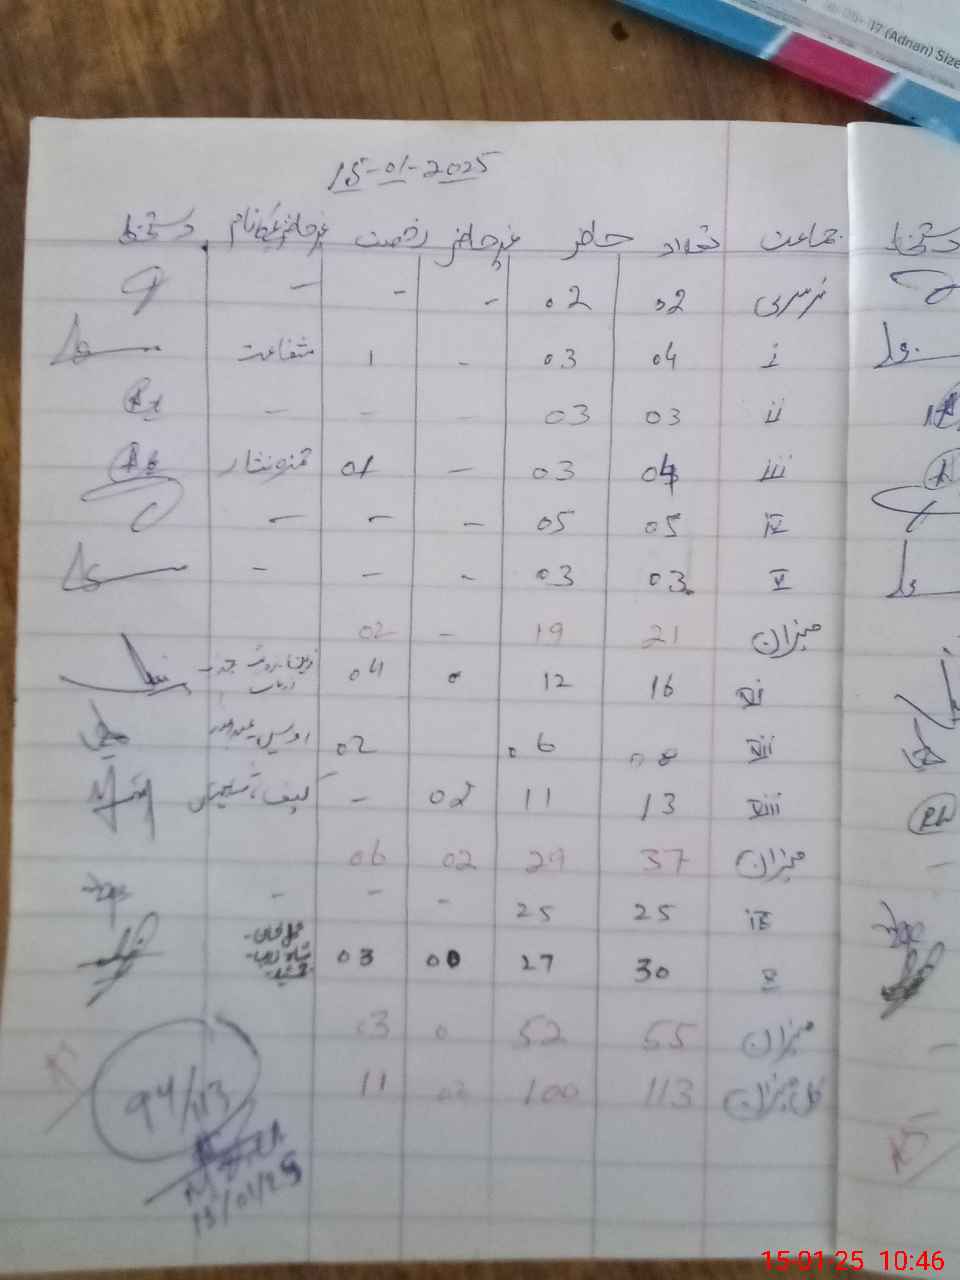 (Adnan) Size
15-01-2025
جماعت تعداد حاضر غیر حاضر رخصت غیر حاضر طلبہ نام دستخط
نرسری 02 02 - - -
I 04 03 - 1 شفاعت
II 03 03 - - -
III 04 03 - 01
IV 05 05 - - -
V 03 03 - - -
میزان 21 19 - 02
VI 16 12 0 04
VII 08 06 02
VIII 13 11 02 -
میزان 37 29 02 06
IX 25 25 - - -
X 30 27 00 03
میزان 55 52 0 03
کل میزان 113 100 02 11
94/113
15/01/25
دستخط
15-01-25 10:46